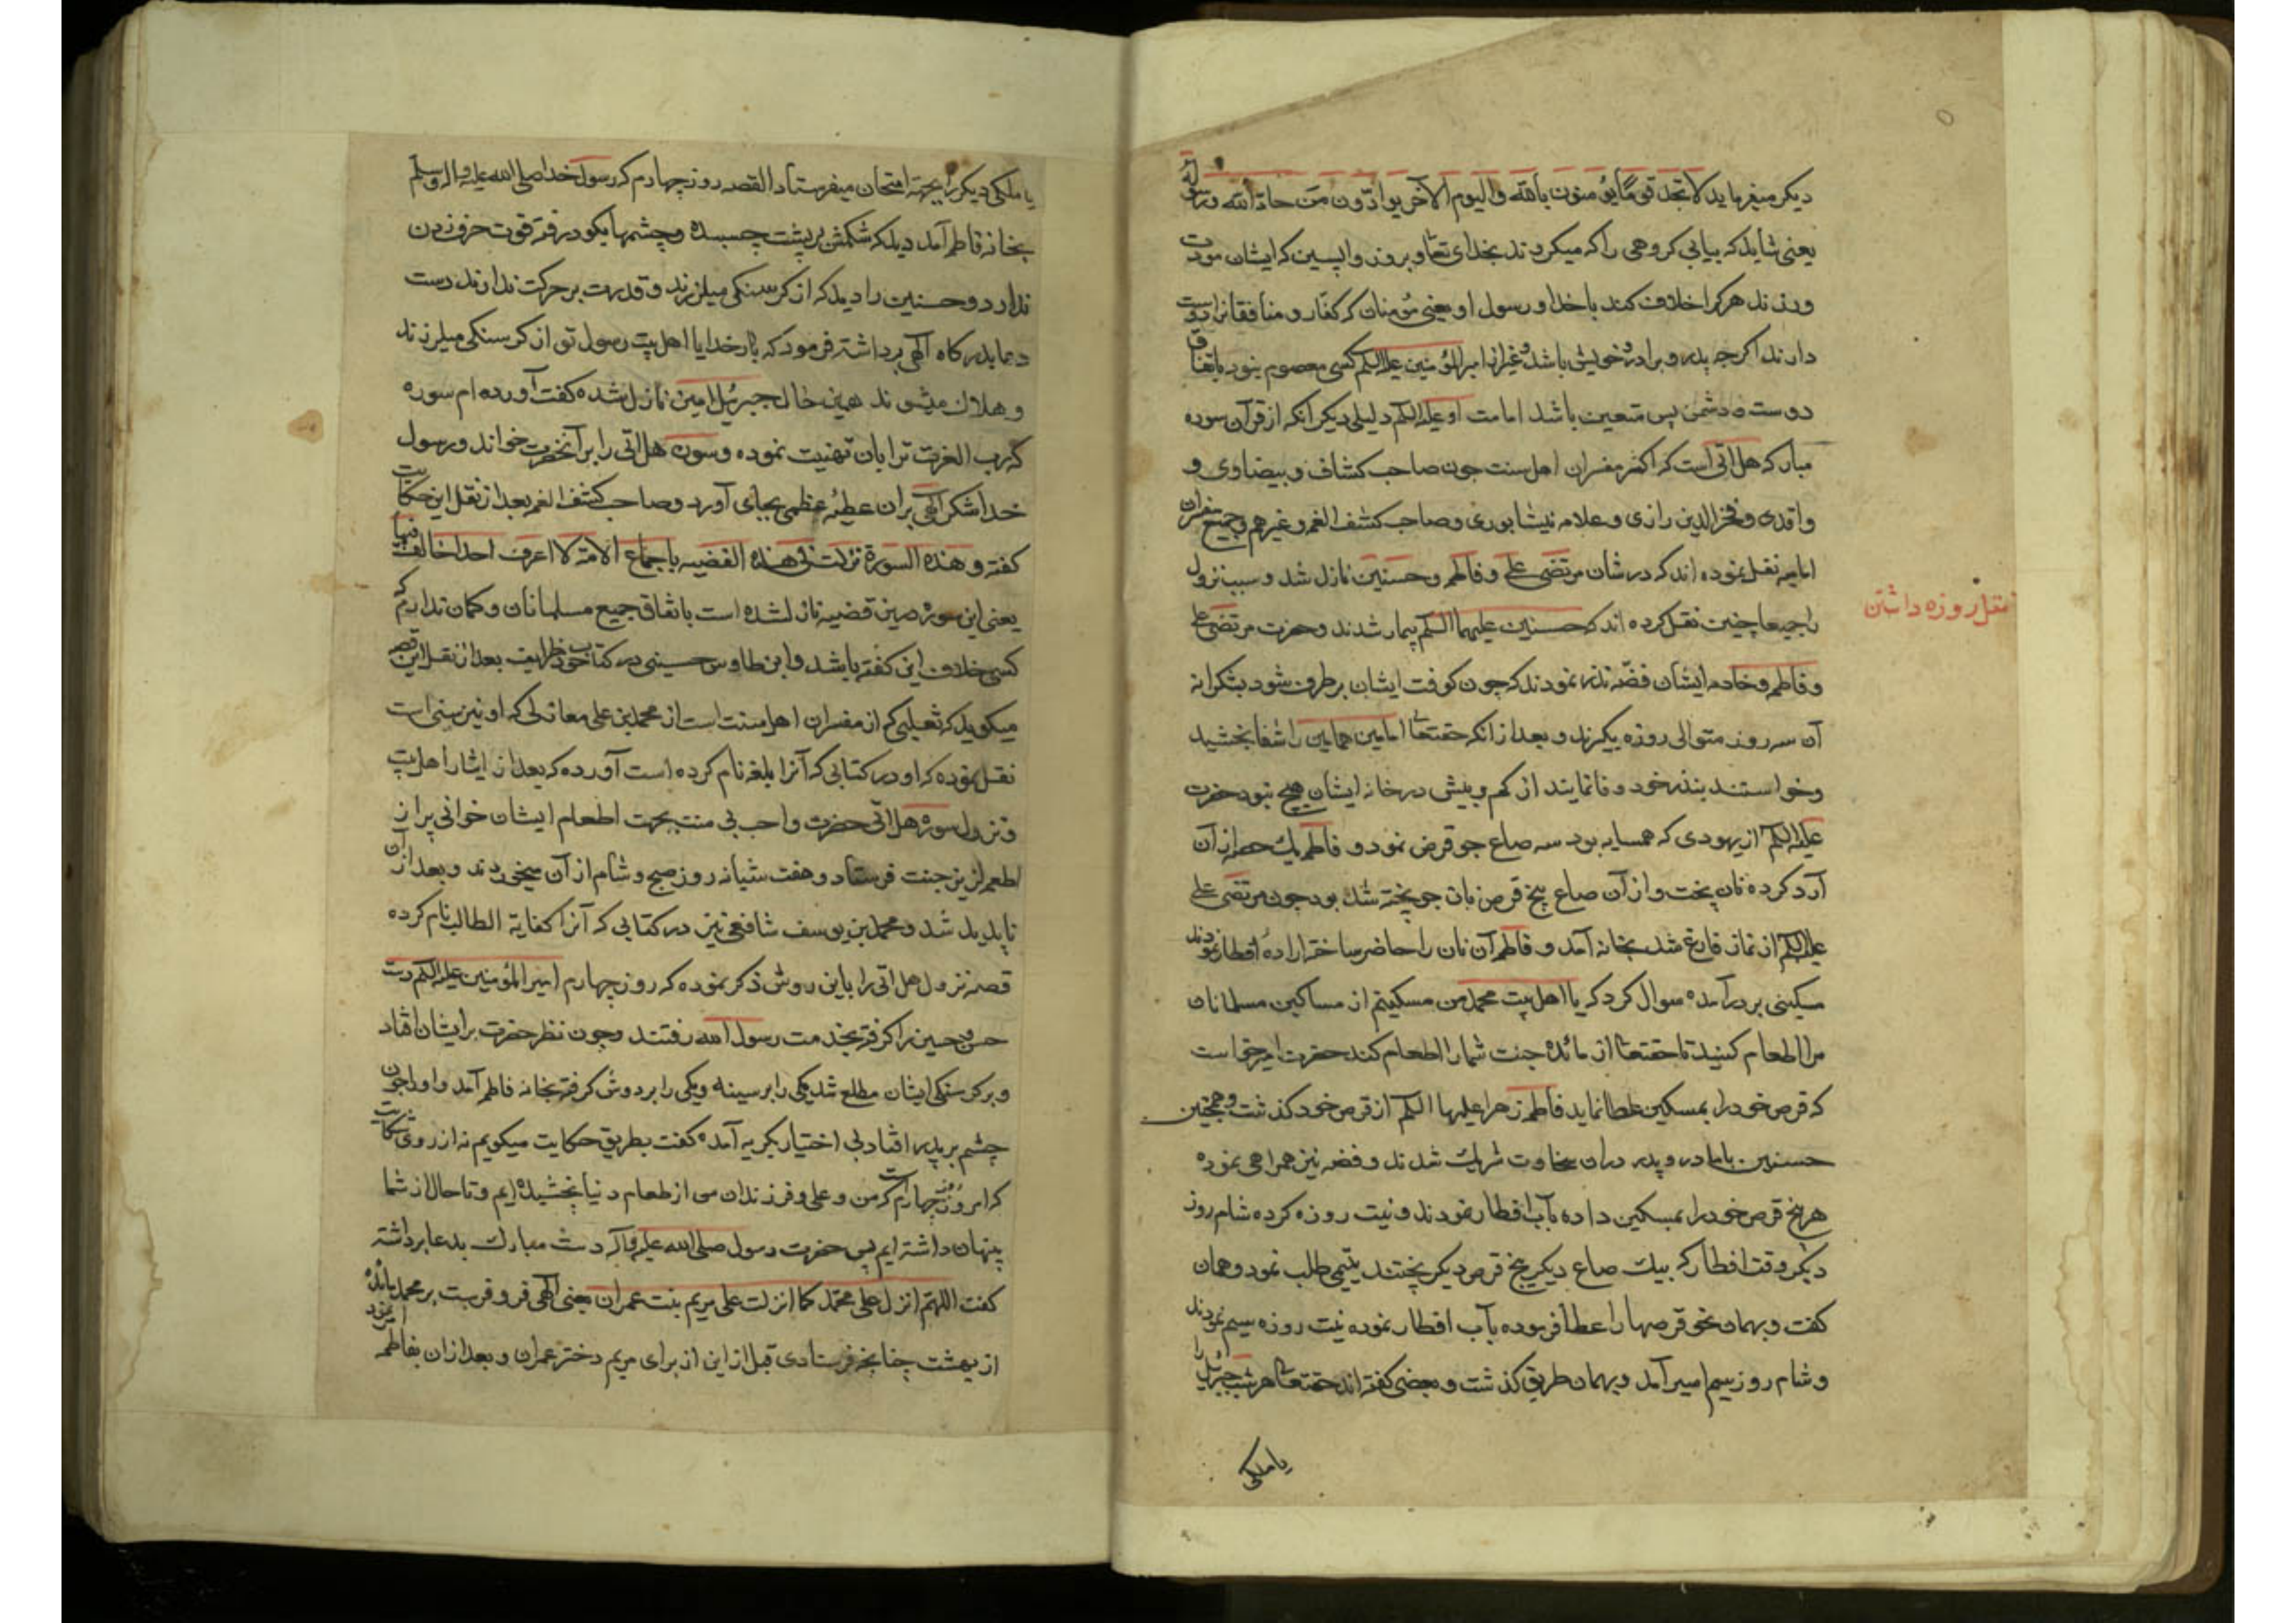 دیکر میفرماید لا تجد قوما یؤمنون بالله والیوم الآخر یوادّون من حادّ الله ورسوله
یعنی شاید که بیابی کروهی را که میکردند بخدای تعا و بروز واپسین که ایشان مودت
ورزند هرکرا خلاف کند با خدا و رسول او یعنی مؤمنان که کفار و منافقانرا دوست
دارند اکرچه پدر و برادر و خویش باشد و غیر از امیرالمؤمنین علیه السلم کسی معصوم نبود باتفاق
دوست و دشمن پس متعین باشد امامت او علیه السلم دلیلی دیکر آنکه از قرآن سوره
مبارکه هل اتی است که اکثر مفسران اهل سنت چون صاحب کشاف و بیضاوی و
واقدی و فخر الدین رازی و علامه نیشابوری و صاحب کشف الغمه و غیرهم و جمیع مفسران
امامیه نقل نموده اند که در شان مرتضی علی و فاطمه و حسنین نازل شد و سبب نزول
را جمیعا چنین نقل کرده اند که حسنین علیهما السلم بیمار شدند و حضرت مرتضی علی
نقل روزه داشتن
و فاطمه و خادمه ایشان فضّه نذر نمودند که چون کوفت ایشان برطرف شود بشکرانه
آن سه روز متوالی روزه بکیرند و بعد از آنکه حقتعا امامین همامین را شفا بخشید
و خواستند بنذر خود وفا نمایند از کم و بیش در خانه ایشان هیچ نبود حضرت
علیه السلم از یهودی که همسایه بود سه صاع جو قرض نمود و فاطمه یک حصه از آن
آرد کرده نان پخت و از آن صاع پنج قرص نان جو پخته شد بود چون مرتضی علی
علیه السلم از نماز فارغ شد بخانه آمد و فاطمه آن نان را حاضر ساخته اراده افطار نمودند
مسکینی بر در آمده سوال کرد که یا اهل بیت محمد من مسکینم از مساکین مسلمانان
مرا اطعام کنید تا حقتعا از مائده جنت شما را اطعام کند حضرت امیر خواست
که قرص خود را بمسکین عطا نماید فاطمه زهرا علیها السلم از قرص خود کذشت و همچنین
حسنین با مادر و پدر در آن سخاوت شریک شدند و فضه نیز همراهی نموده
هر پنج قرص خود را بمسکین داده بآب افطار نمودند و نیت روزه کرده شام روز
دیکر وقت افطار که بیک صاع دیکر پنج قرص دیکر پختند یتیمی طلب نمود و همان
کفت و بهمان نحو قرصها را عطا فرموده بآب افطار نموده نیت روزه سیم نمودند
و شام روز سیم اسیر آمد و بهمان طریق کذشت و بعضی کفته اند حقتعا هر شب جبرئیل را
یا ملکی
یا ملکی دیکر را بجهة امتحان میفرستاد القصه روز چهارم که رسول خدا صلی الله علیه و اله وسلم
بخانه فاطمه آمد دید که شکمش بر پشت چسبیده و چشمها بکود رفته قوت حرف زدن
ندارد و حسنین را دید که از کرسنکی میلرزند و قدرت بر حرکت ندارند دست
دعا بدرکاه الهی برداشته فرمود که بارخدایا اهل بیت رسول تو از کرسنکی میلرزند
و هلاک میشوند همین حال جبرئیل امین نازل شده کفت آورده ام سوره
که رب العزت ترا بان تهنیت نموده و سوره هل اتی را بر آنحضرت خواند و رسول
خدا شکر الهی بر آن عطیه عظمی بجای آورد و صاحب کشف الغمه بعد از نقل این حکایت
کفته و هذه السورة نزلت فی هذه القضیه باجماع الامة لا اعرف احدا خالف فیها
یعنی این سوره درین قضیه نازل شده است باتفاق جمیع مسلمانان و کمان ندارم که
کسی خلاف این کفته باشد و ابن طاوس حسینی در کتاب خود طرایف بعد از نقل این قصه
میکوید که ثعلبی که از مفسران اهل سنت است از محمد بن علی معازلی که او نیز سنی است
نقل نموده که او در کتابی که آنرا بلغه نام کرده است آورده که بعد از ایثار اهل بیت
و نزول سوره هل اتی حضرت واحب بی منت بجهت اطعام ایشان خوانی پر از
اطعمه از جنت فرستاد و هفت شبانه روز صبح و شام از آن میخوردند و بعد از آن
ناپدید شد و محمد بن یوسف شافعی نیز در کتابی که آنرا کفایة الطالب نام کرده
قصه نزول هل اتی را باین روش ذکر نموده که روز چهارم امیرالمؤمنین علیه السلم دست
حسن و حسین را کرفته بخدمت رسول الله رفتند و چون نظر حضرت بر ایشان افتاد
و بر کرسنکی ایشان مطلع شد یکی را بر سینه و یکی را بر دوش کرفته بخانه فاطمه آمد و او را چون
چشم بر پدر افتاد بی اختیار بکریه آمده کفت بطریق حکایت میکویم نه از روی شکایت
که امروز روز چهارم است که من و علی و فرزندان من از طعام دنیا نچشیده ایم و تا حال از شما
پنهان داشته ایم پس حضرت رسول صلی الله علیه وآله دست مبارک بدعا برداشته
کفت اللهم انزل علی محمد کما انزلت علی مریم بنت عمران یعنی الهی فرو فرست بر محمد مائده
از بهشت چنانچه فرستادی قبل از این از برای مریم دختر عمران و بعد از آن بفاطمه